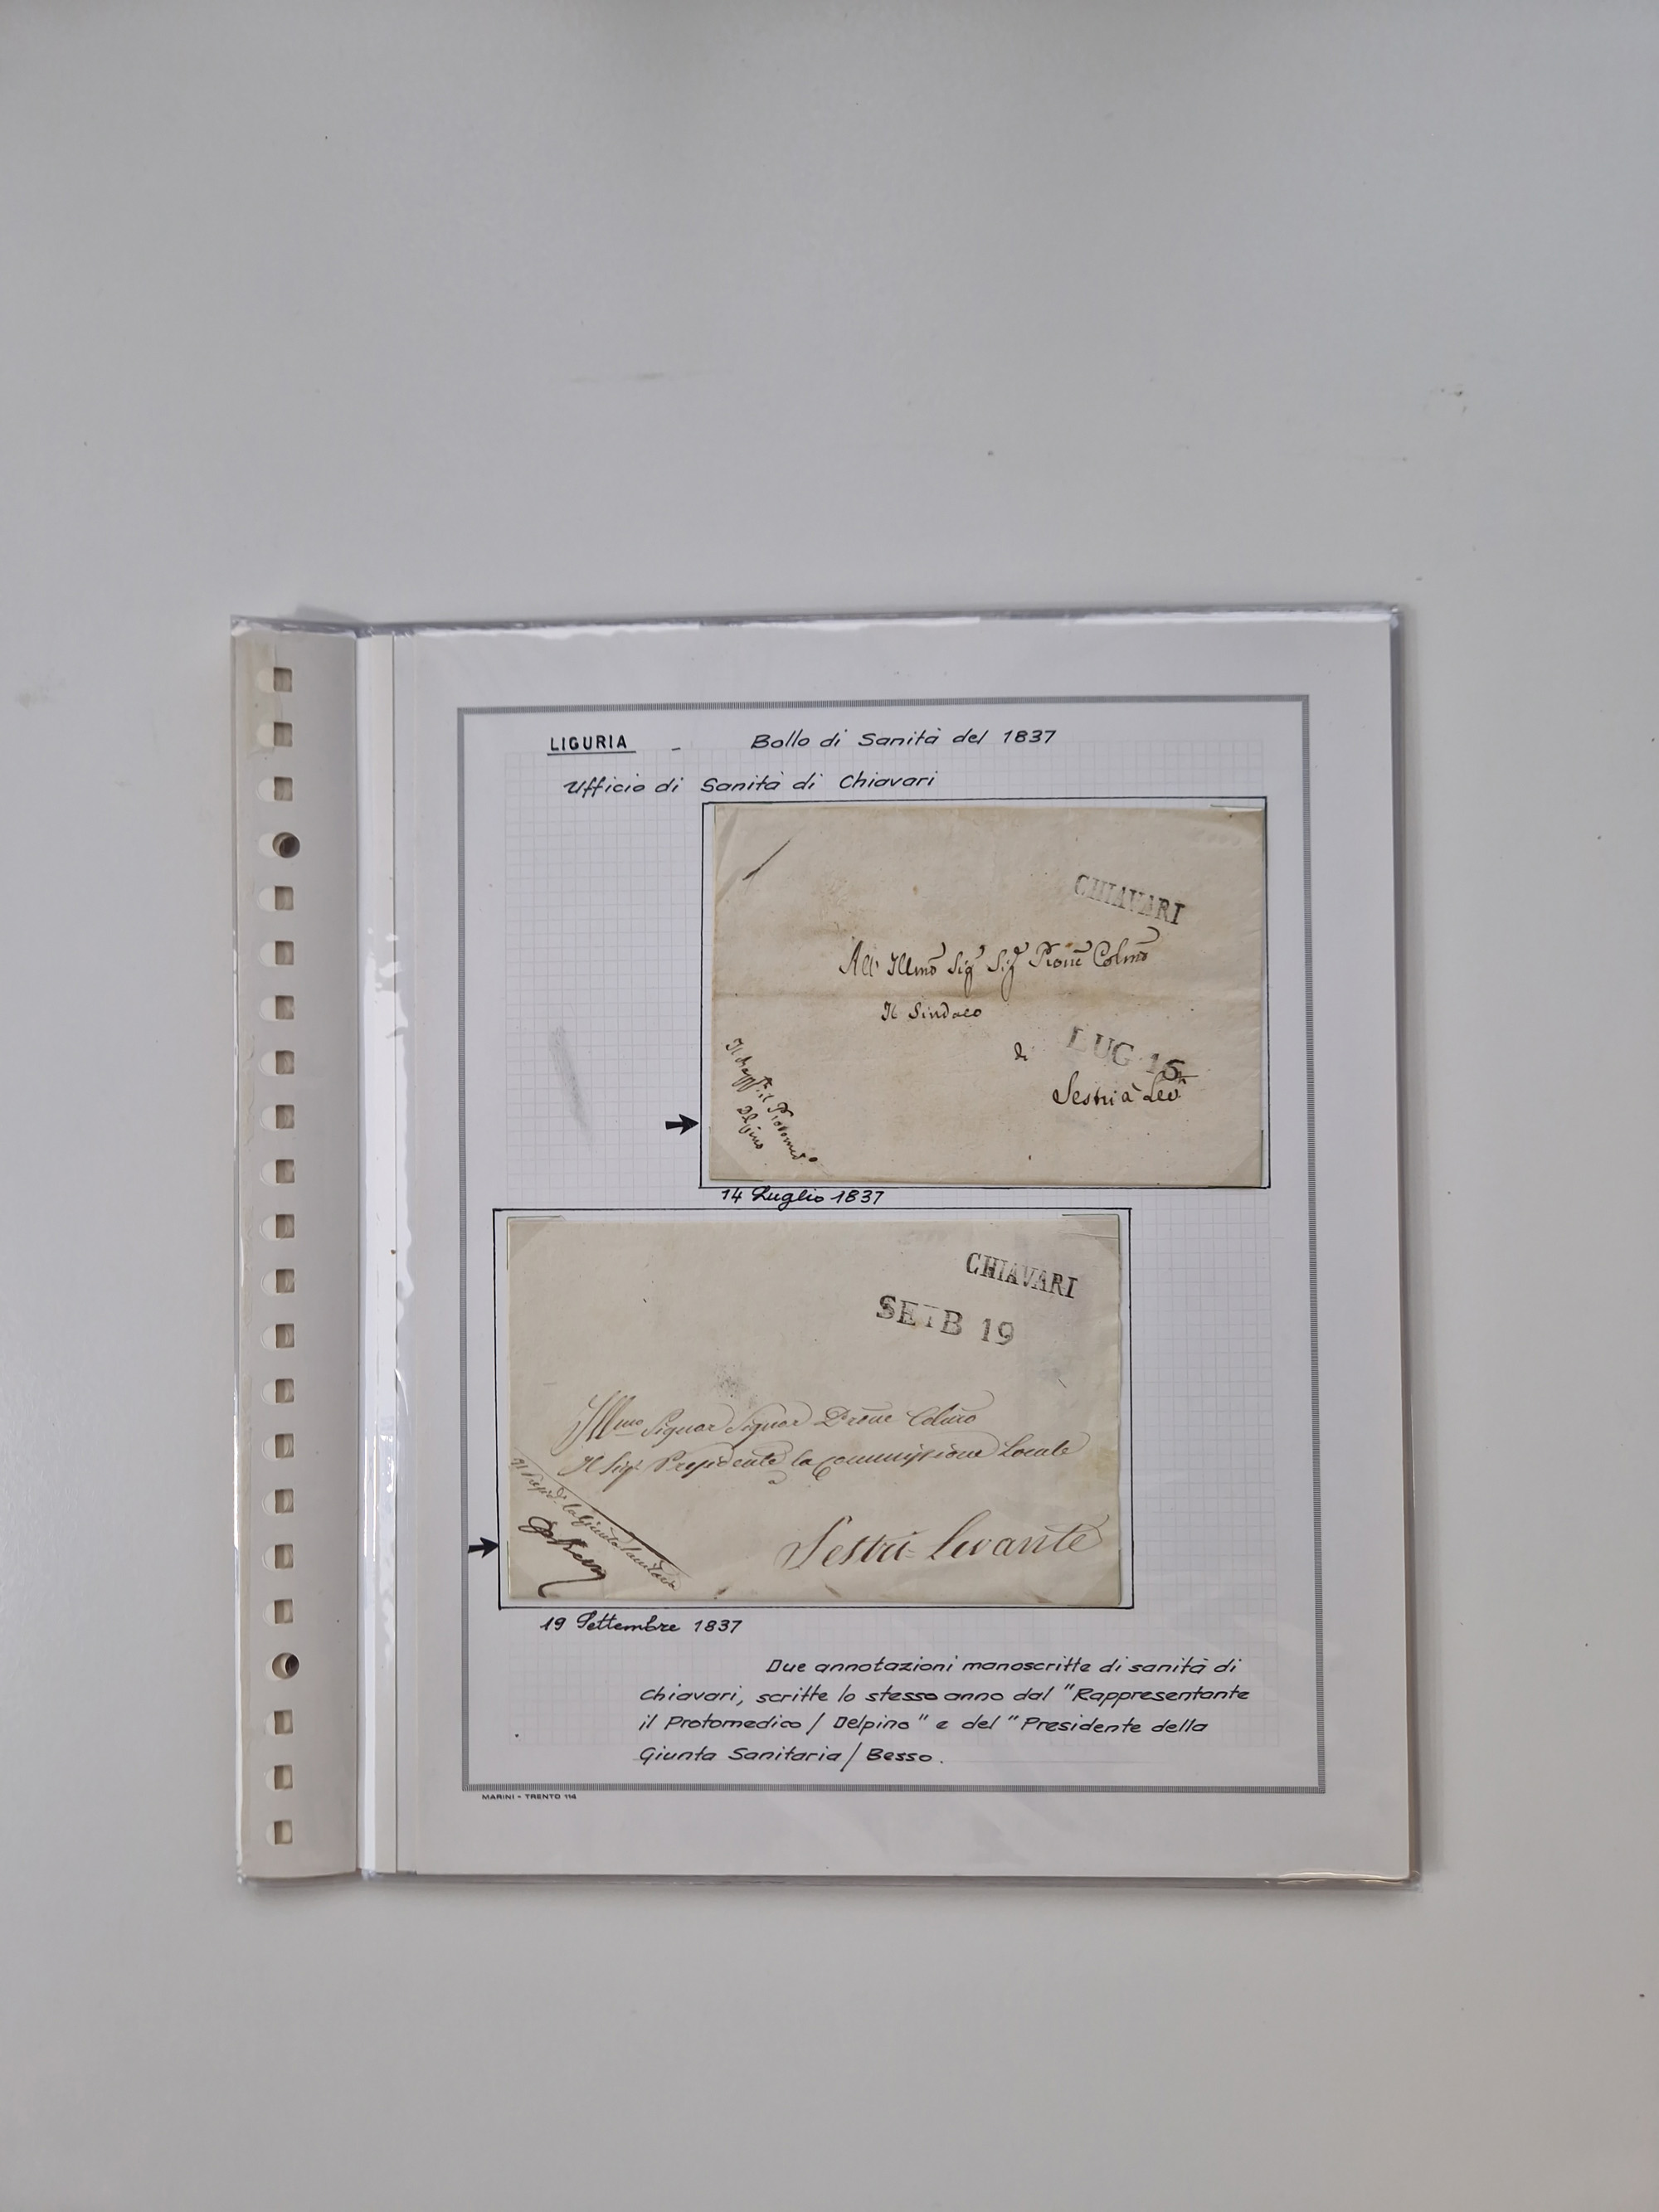 LIGURIA - Bollo di Sanità del 1837
Ufficio di Sanità di Chiavari
CHIAVARI
All' Illmo Sigr Sigr Prone Colmo
Il Sindaco
di
LUG 15
Sestri à Levte
Il Rapptte il Protomedico
Delpino
14 Luglio 1837
CHIAVARI
SETB 19
Illmo Signor Signor Prone Colmo
Il Sigr Presidente la Commissione Locale
a
Sestri Levante
Il Presidte la Giunta Sanitaria
19 Settembre 1837
Due annotazioni manoscritte di sanità di
Chiavari, scritte lo stesso anno dal "Rappresentante
il Protomedico / Delpino" e del "Presidente della
Giunta Sanitaria / Besso.
MARINI - TRENTO 114